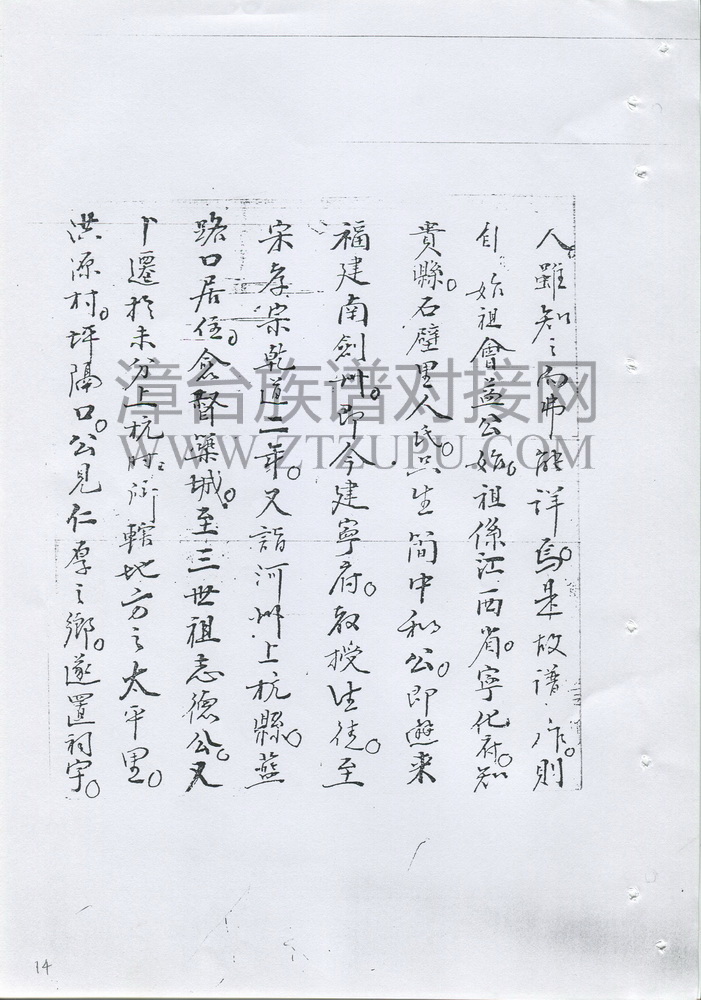 人雖知之而弗能詳焉。是故譜作。則
自始祖會益公始。祖係江西省。寧化府。知
貴縣。石壁里人氏。只生簡中和公。即遊来
福建南劍州。即今建寧府。教授生徒。至
宋孝宗乾道二年。又詣河州上杭縣。藍
路口居住。念督藥城。至三世祖志德公。又
卜遷於未分上杭時所轄地方之太平里。
洪源村。坪隔口。公見仁厚之鄉。遂置祠宇。
漳台族谱对接网
WWW.ZTZUPU.COM
14